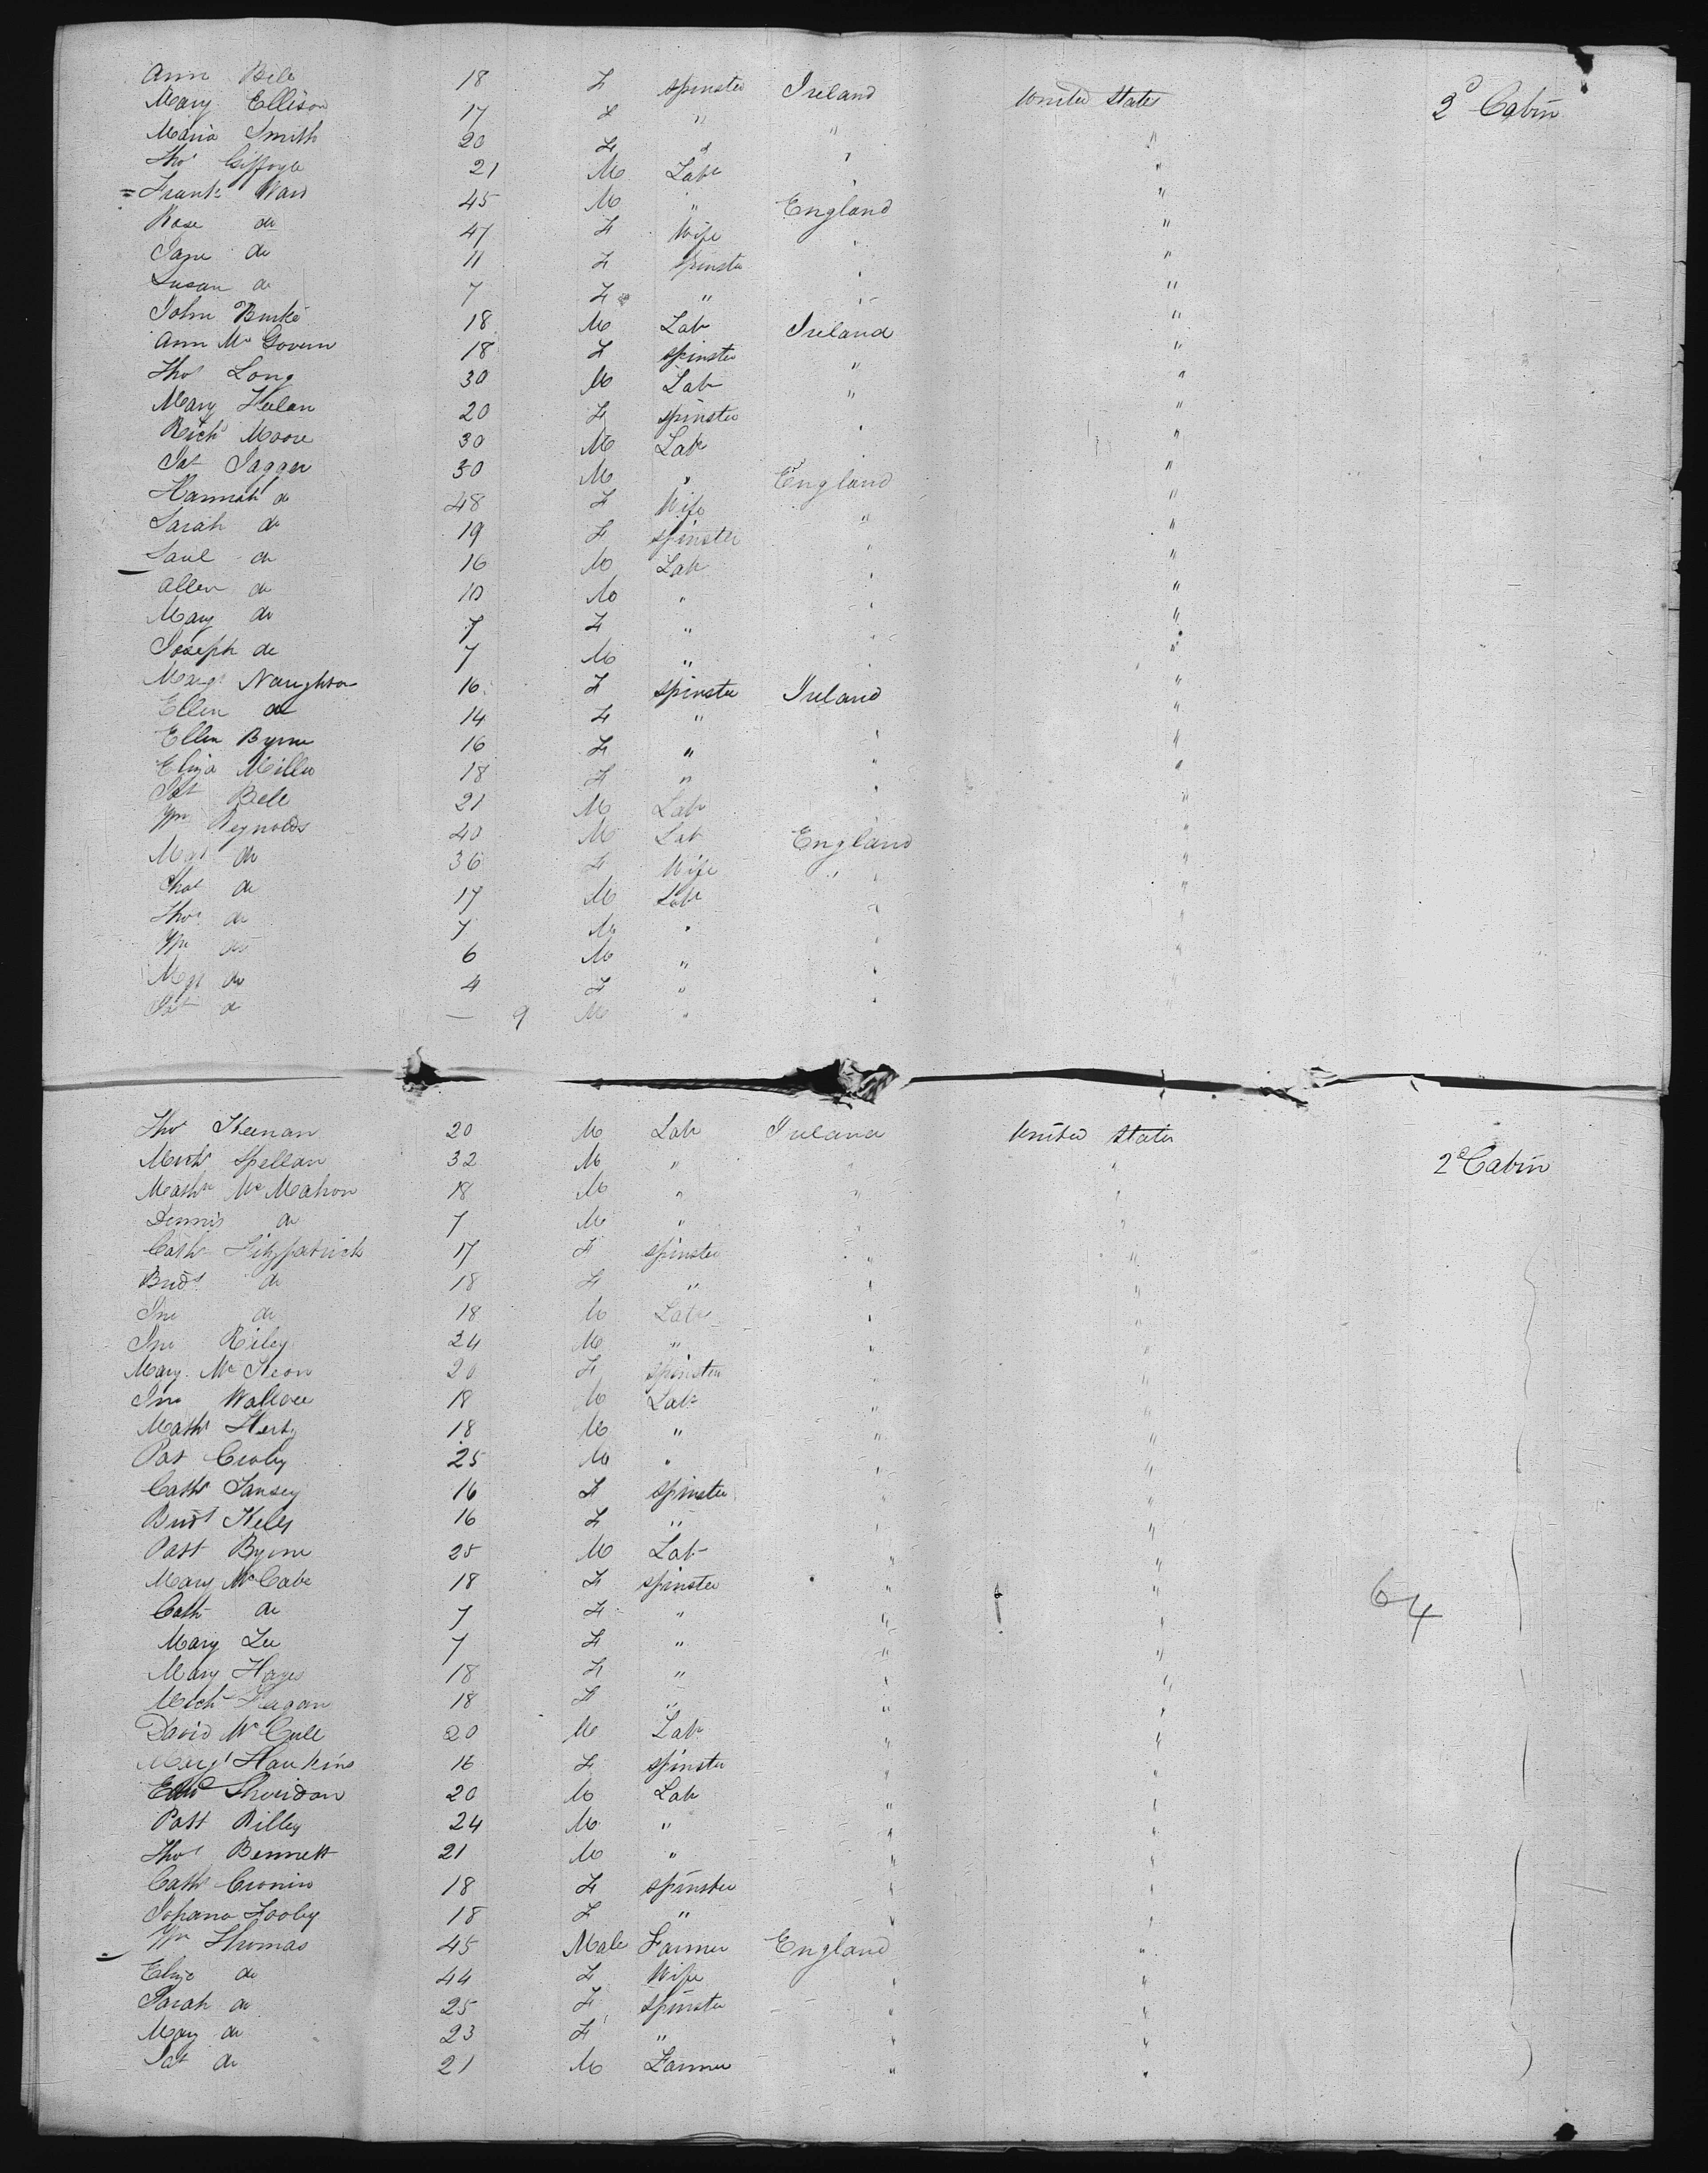 Ann Bell 18 F spinster Ireland United States 2d Cabin
Mary Ellison 17 F " " "
Maria Smith 20 F " " "
Thos 21 M Labr " "
Frank Ward 45 M " England "
Rose do 47 F Wife " "
Jane do 11 F Spinster " "
Susan do 7 F " " "
John Burke 18 M Lab Ireland "
Ann Mc Govern 18 F spinster " "
Thos Long 30 M Lab " "
Mary 20 F spinster " "
Richd Moore 30 M Labr "
Jas Jagger 50 M " England "
Hannah do 48 F Wife " "
Sarah do 19 F spinster " "
Saul do 16 M Lab " "
Allen do 10 M " " "
Mary do 7 F " " "
Joseph do 7 M " " "
Margt Naughton 16 F spinster Ireland "
Ellen do 14 F " " "
Ellen Byrne 16 F " " "
Eliza Miller 18 F " " "
Pat Bell 21 M Lab "
Wm Reynolds 40 M Lab England "
Mgt do 36 F Wife " "
Chas do 17 M Lab " "
Thos do 7 M " " "
Wm do 6 M " " "
Mgt do 4 F " " "
Pat do — 9 M "
Thos Keenan 20 M Lab Ireland United States
Mich Spellan 32 M " " " 2d Cabin
Mathw Mc Mahon 18 M " " "
Dennis do 7 M " "
Cath Fitzpatrick 17 F spinster " "
Bridt do 18 F " " "
Jno do 18 M Labr " "
Jno Riley 24 M " " "
Mary Mc Keon 20 F spinster " "
Jno Wallace 18 M Labr " "
Mathw 18 M " " "
Pat 25 M " " "
Cath 16 F spinster " "
Bridt Kelly 16 F " " "
Patt Byrne 25 M Lab " "
Mary McCabe 18 F spinster " "
Cath do 7 F " " " 64
Mary Lee 7 F " " "
Mary Hayes 18 F " " "
Mich Keegan 18 F " " "
David Mc Cull 20 M Labr " "
Margt Hawkins 16 F spinster " "
Edwd Sheridan 20 M Lab " "
Patt Rilley 24 M " " "
Thos Bennett 21 M " " "
Cath Cronin 18 F spinster " "
Johana Looby 18 F " " "
Wm Thomas 45 Male Farmer England "
Eliza do 44 F Wife " "
Sarah do 25 F spinster " "
Mary do 23 F " " "
Jas do 21 M Farmer " "